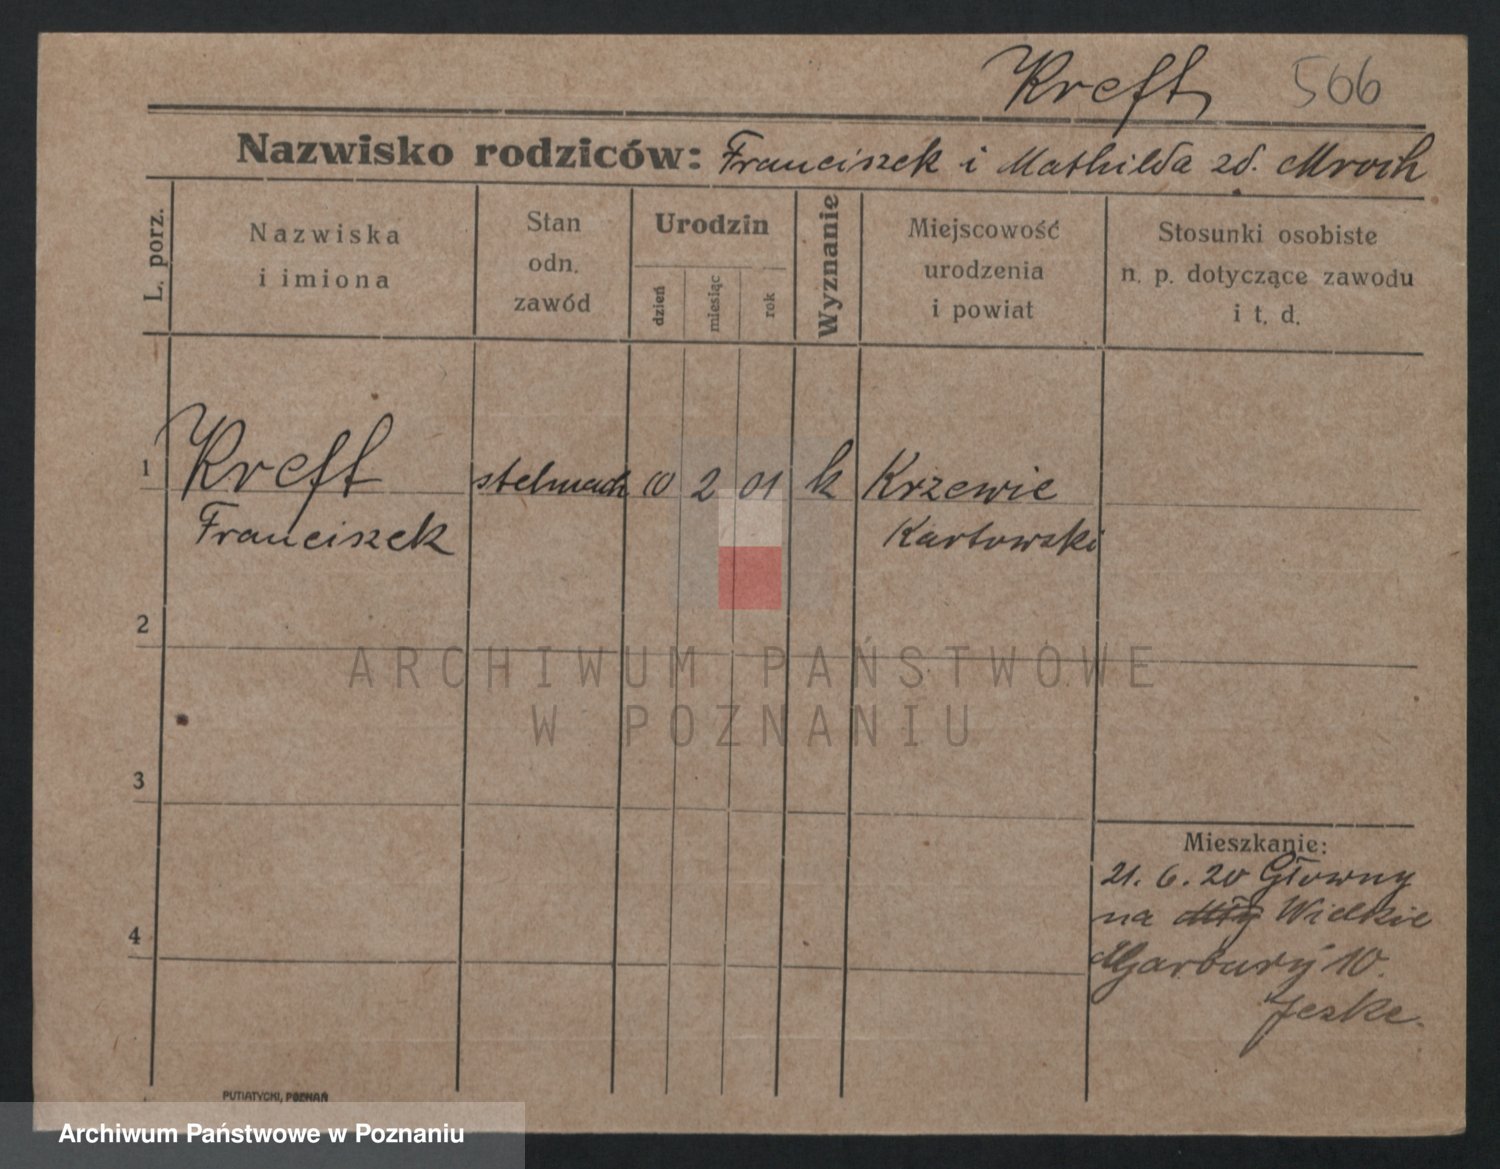 Kreft 566
Nazwisko rodziców: Franciszek i Mathilda zd. Mroch
L. porz.
Nazwiska
i imiona
Stan
odn.
zawód
Urodzin
dzień
miesiąc
rok
Wyznanie
Miejscowość
urodzenia
i powiat
Stosunki osobiste
n. p. dotyczące zawodu
i t. d.
1 Kreft stelmach 10 2 01 k Krzewie
Franciszek Kartowski
2
ARCHIWUM PAŃSTWOWE
W POZNANIU
3
Mieszkanie:
21. 6. 20 Główny
na Wielkie
4
Garbary 10.
Jeske.
PUTIATYCKI, POZNAŃ
Archiwum Państwowe w Poznaniu